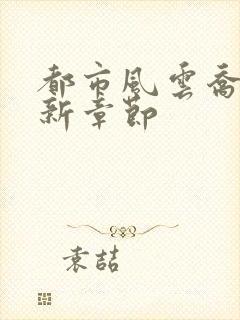 都市風雲喬
新章節
袁喆